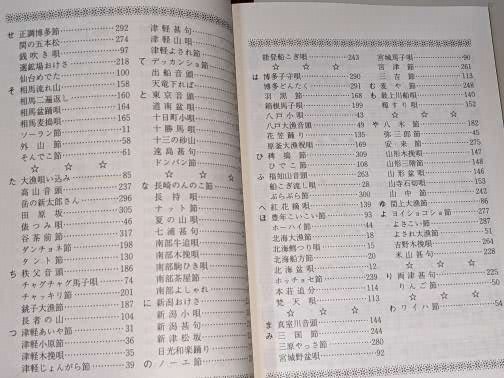 せ 正調博多節 292
関の五本松 274
銭吹き唄 97
選鉱場おけさ 218
仙台めでた 100
そ 相馬流れ山 158
相馬二遍返し 160
相馬盆踊唄 164
相馬麦搗唄 165
ソーラン節 11
外山節 58
そんでこ節 61
☆ ☆ ☆
た 大漁唄い込み 85
高山音頭 237
岳の新太郎さん 296
田原坂 305
俵つみ唄 46
谷茶前節 317
ダンチョネ節 198
タント節 130
ち 秩父音頭 186
チャグチャグ馬子唄 74
チャッキリ節 201
銚子大漁節 187
長者の山 104
つ 津軽あいや節 31
津軽小原節 36
津軽木挽唄 35
津軽じょんがら節 39
津軽甚句
津軽山唄
津軽よされ節
て デッカンショ節
出船音頭
天竜下れば
と 東京音頭
道南盆唄
十日町小唄
十勝馬唄
十三の砂山
遠島甚句
ドンパン節
☆ ☆
な 長崎のんのこ節
長持唄
ナット節
夏の山唄
七浦甚句
南部牛追唄
南部木挽唄
南部駒ひき唄
南部茶屋節
南部よしゃれ
に 新潟おけさ
新潟小唄
新潟甚句
新津松坂
日光和楽踊り
の ノーエ節
能登船こぎ唄 243
☆ ☆ ☆
は 博多子守唄 290
博多どんたく 291
羽黒節 168
箱根馬子唄 199
八戸小唄 43
八戸大漁音頭 49
花笠踊り 135
原釜大漁祝唄 169
ひ 稗搗節 309
ひでこ節 108
ふ 福知山音頭
船こぎ流し唄 28
ぶらぶら節
へ 紅花摘唄 139
ほ 豊年こいこい節 93
ホーハイ節 44
北海大漁節 18
北海鱈つり唄 15
北海船方節 20
北海盆唄 12
ホッチョセ節 239
本荘追分 114
梵天唄 111
☆ ☆ ☆
ま 真室川音頭 144
み 三国節 244
三原やっさ節 280
宮城野盆唄 92
宮城馬子唄 90
宮津節 261
三吉節 112
む 麦や節 240
も 最上川船唄 140
籾すり唄 152
☆ ☆ ☆
や 八木節 182
弥三郎節 45
安来節 275
山形木挽唄 147
山形三階節 148
山形盆唄 146
山寺石切唄 153
山中節 242
ゆ 閖上大漁節 86
よ ヨイショコショ節 277
よさこい節 287
よされ大漁節 51
吉野木挽唄 264
米山甚句 228
☆ ☆ ☆
り 両津甚句 225
りんご節 50
☆ ☆ ☆
わ ワイハ節 54